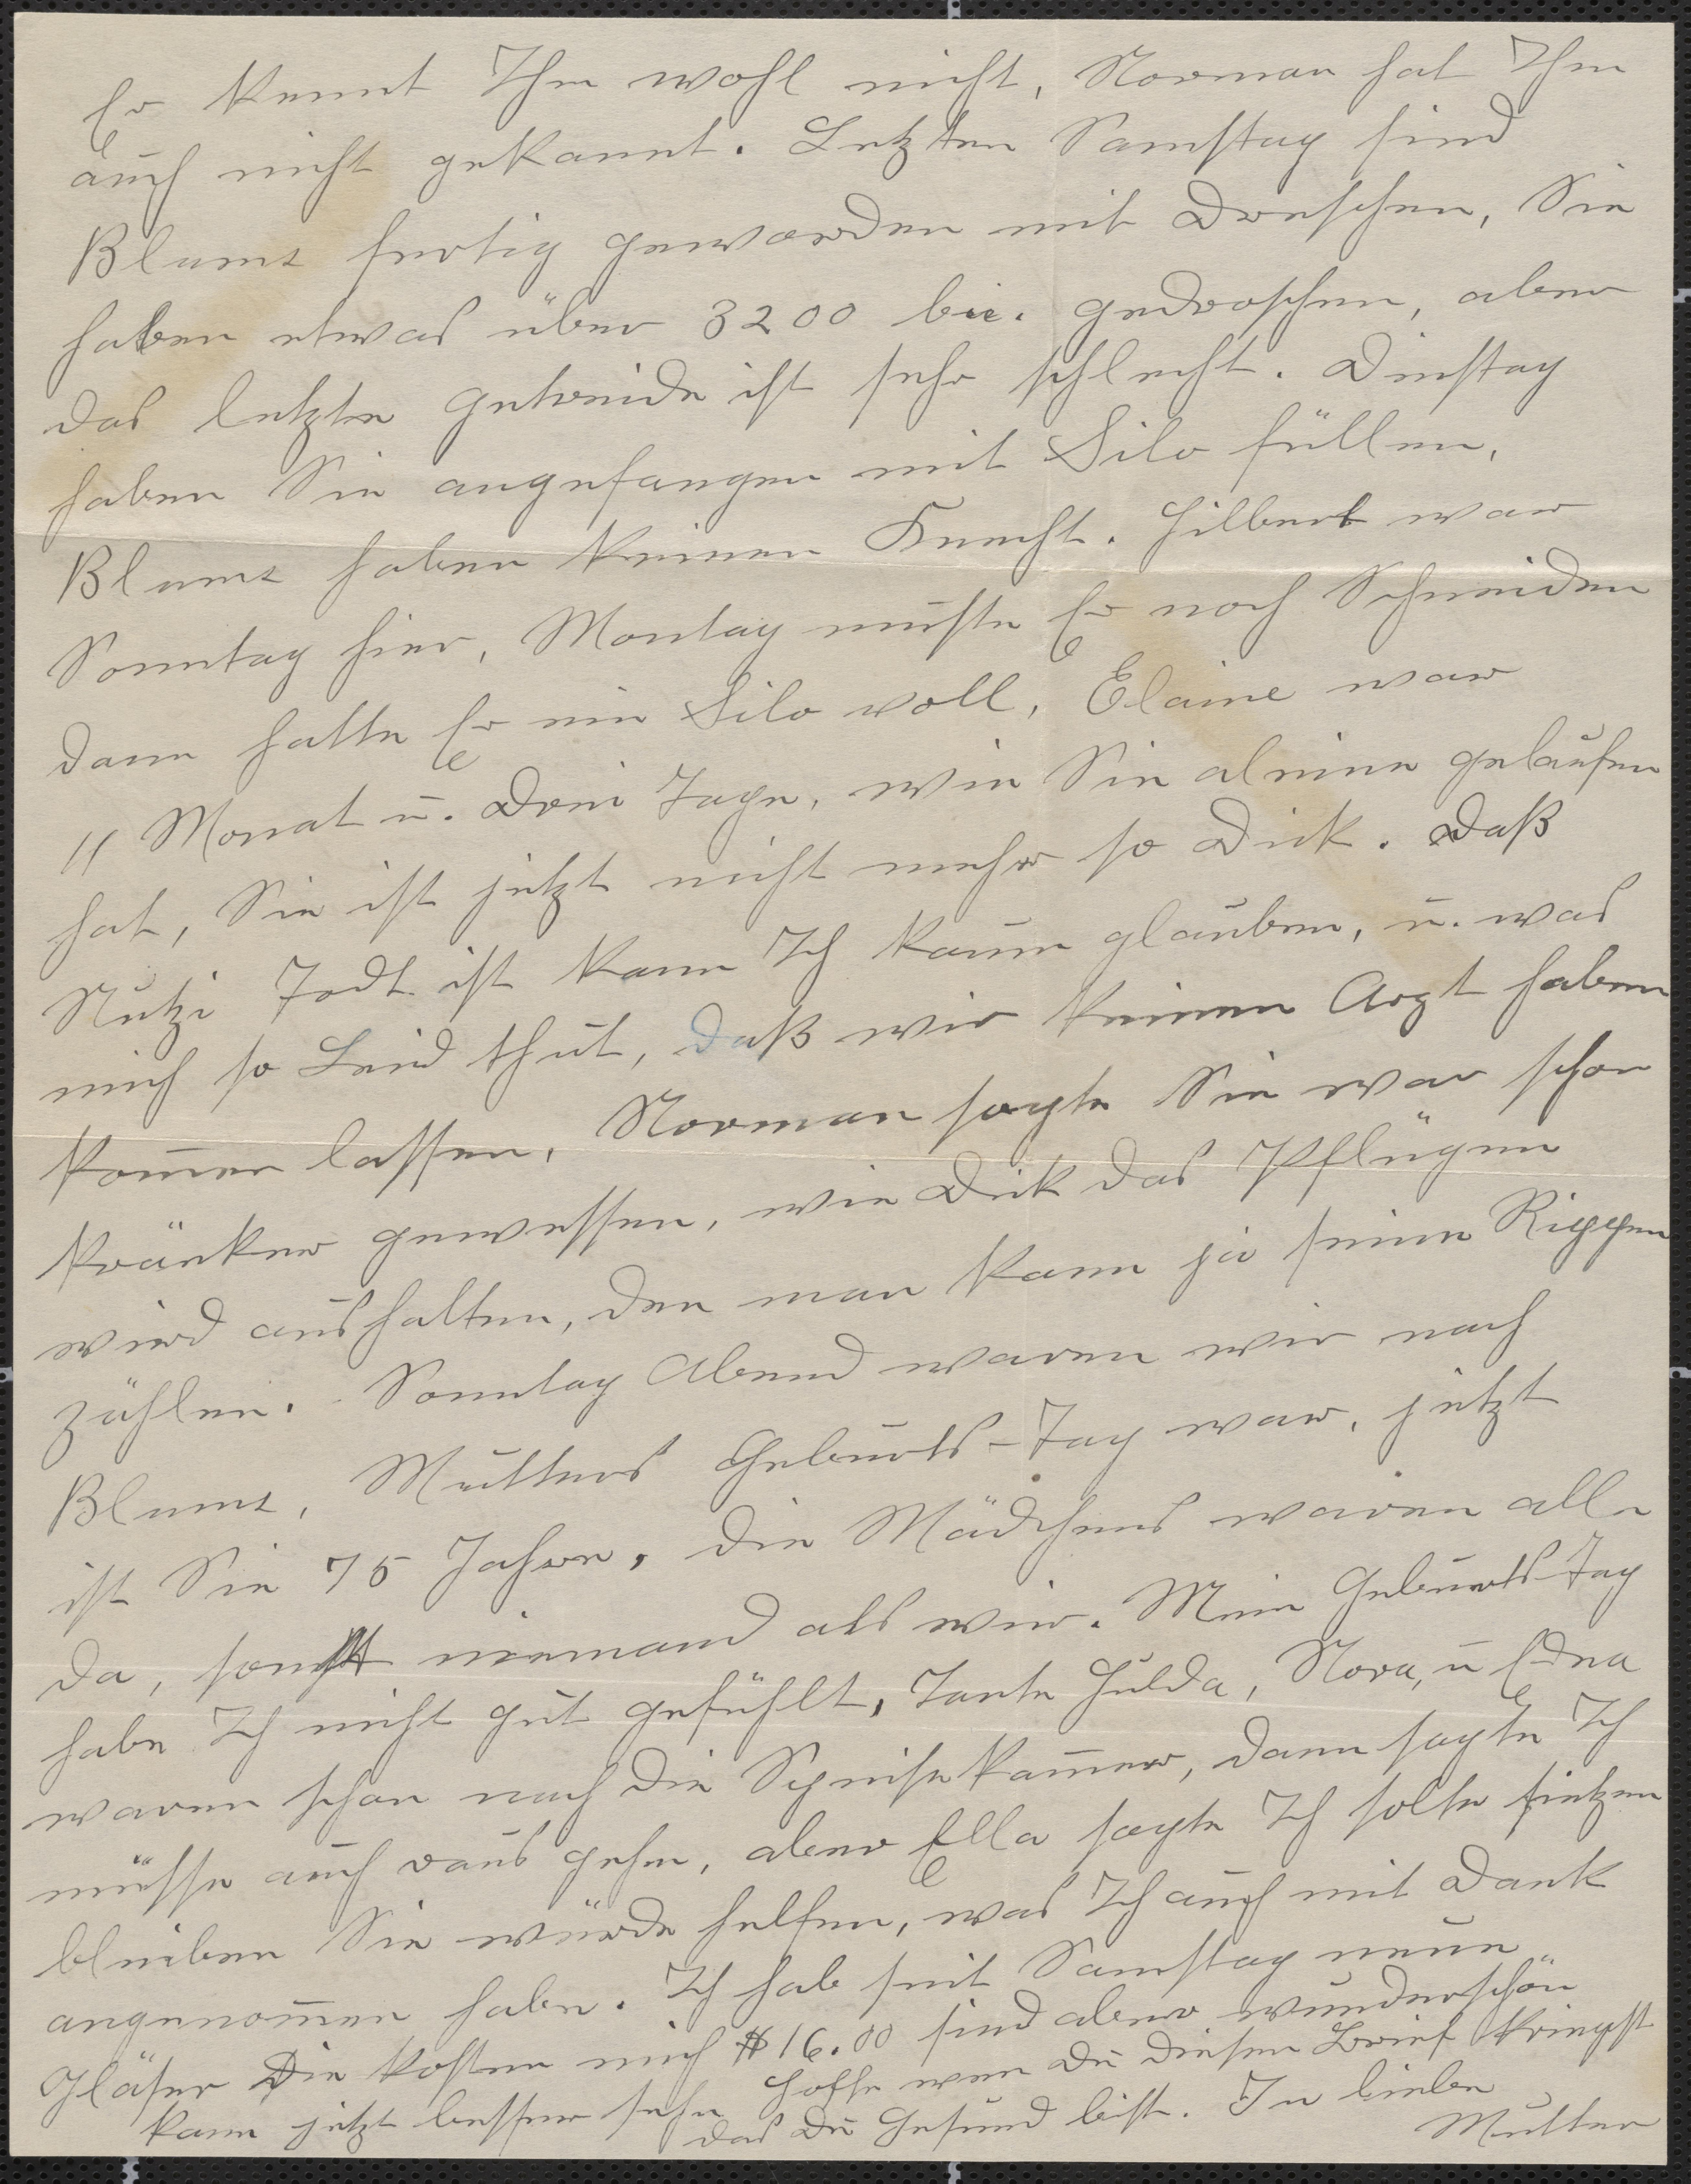 Er kennt Ihn wohl nicht, Norman hat Ihn
auch nicht gekannt. Letzten Samstag sind
Blums fertig geworden mit Dreschen, Sie
haben etwas über 3200 bu. gedroschen, aber
das letzte Getreide ist sehr schlecht. Dinstag
haben Sie angefangen mit Silo füllen,
Blums haben keinen Knecht. Hilbert war
Sonntag hier, Montag muste Er noch Schneiden
dann hatte Er ein Silo voll, Elaine war
11 Monat u. Drei Tage, wie Sie aleine gelaufen
hat, Sie ist jetzt nicht mehr so Dick. Daß
Nutzi Todt ist kann Ich kaum glauben, u. was
mich so Leid thut, daß wir keinen Arzt haben
kom̄en lassen, Norman sagte Sie war schon
kränker gewessen, wie Dick das Pflügen
wird aushalten, den man kann ja seine Rippen
zählen. Sonntag Abend waren wir nach
Blums, Mutters Geburts-Tag war, jetzt
ist Sie 75 Jahre, die Mädchens waren alle
da, sonst niemand als wir. Mein Geburts-Tag
habe Ich nicht gut gefühlt, Tante Hulda, Nora, u Edna
waren schon nach die Speisekam̄er, dann sagte Ich
müsse auch raus gehn, aber Ella sagte Ich solte sietzen
bleiben Sie würde helfen, was Ich auch mit Dank
angenom̄en habe. Ich hab seit Samstag neue
Gläser Die kosten mich $16.00 sind aber wunderschön
kann jetzt besser sehn Hoffe wen Du diesen Brief kriegst
das Du Gesund bist. In liebe
Mutter